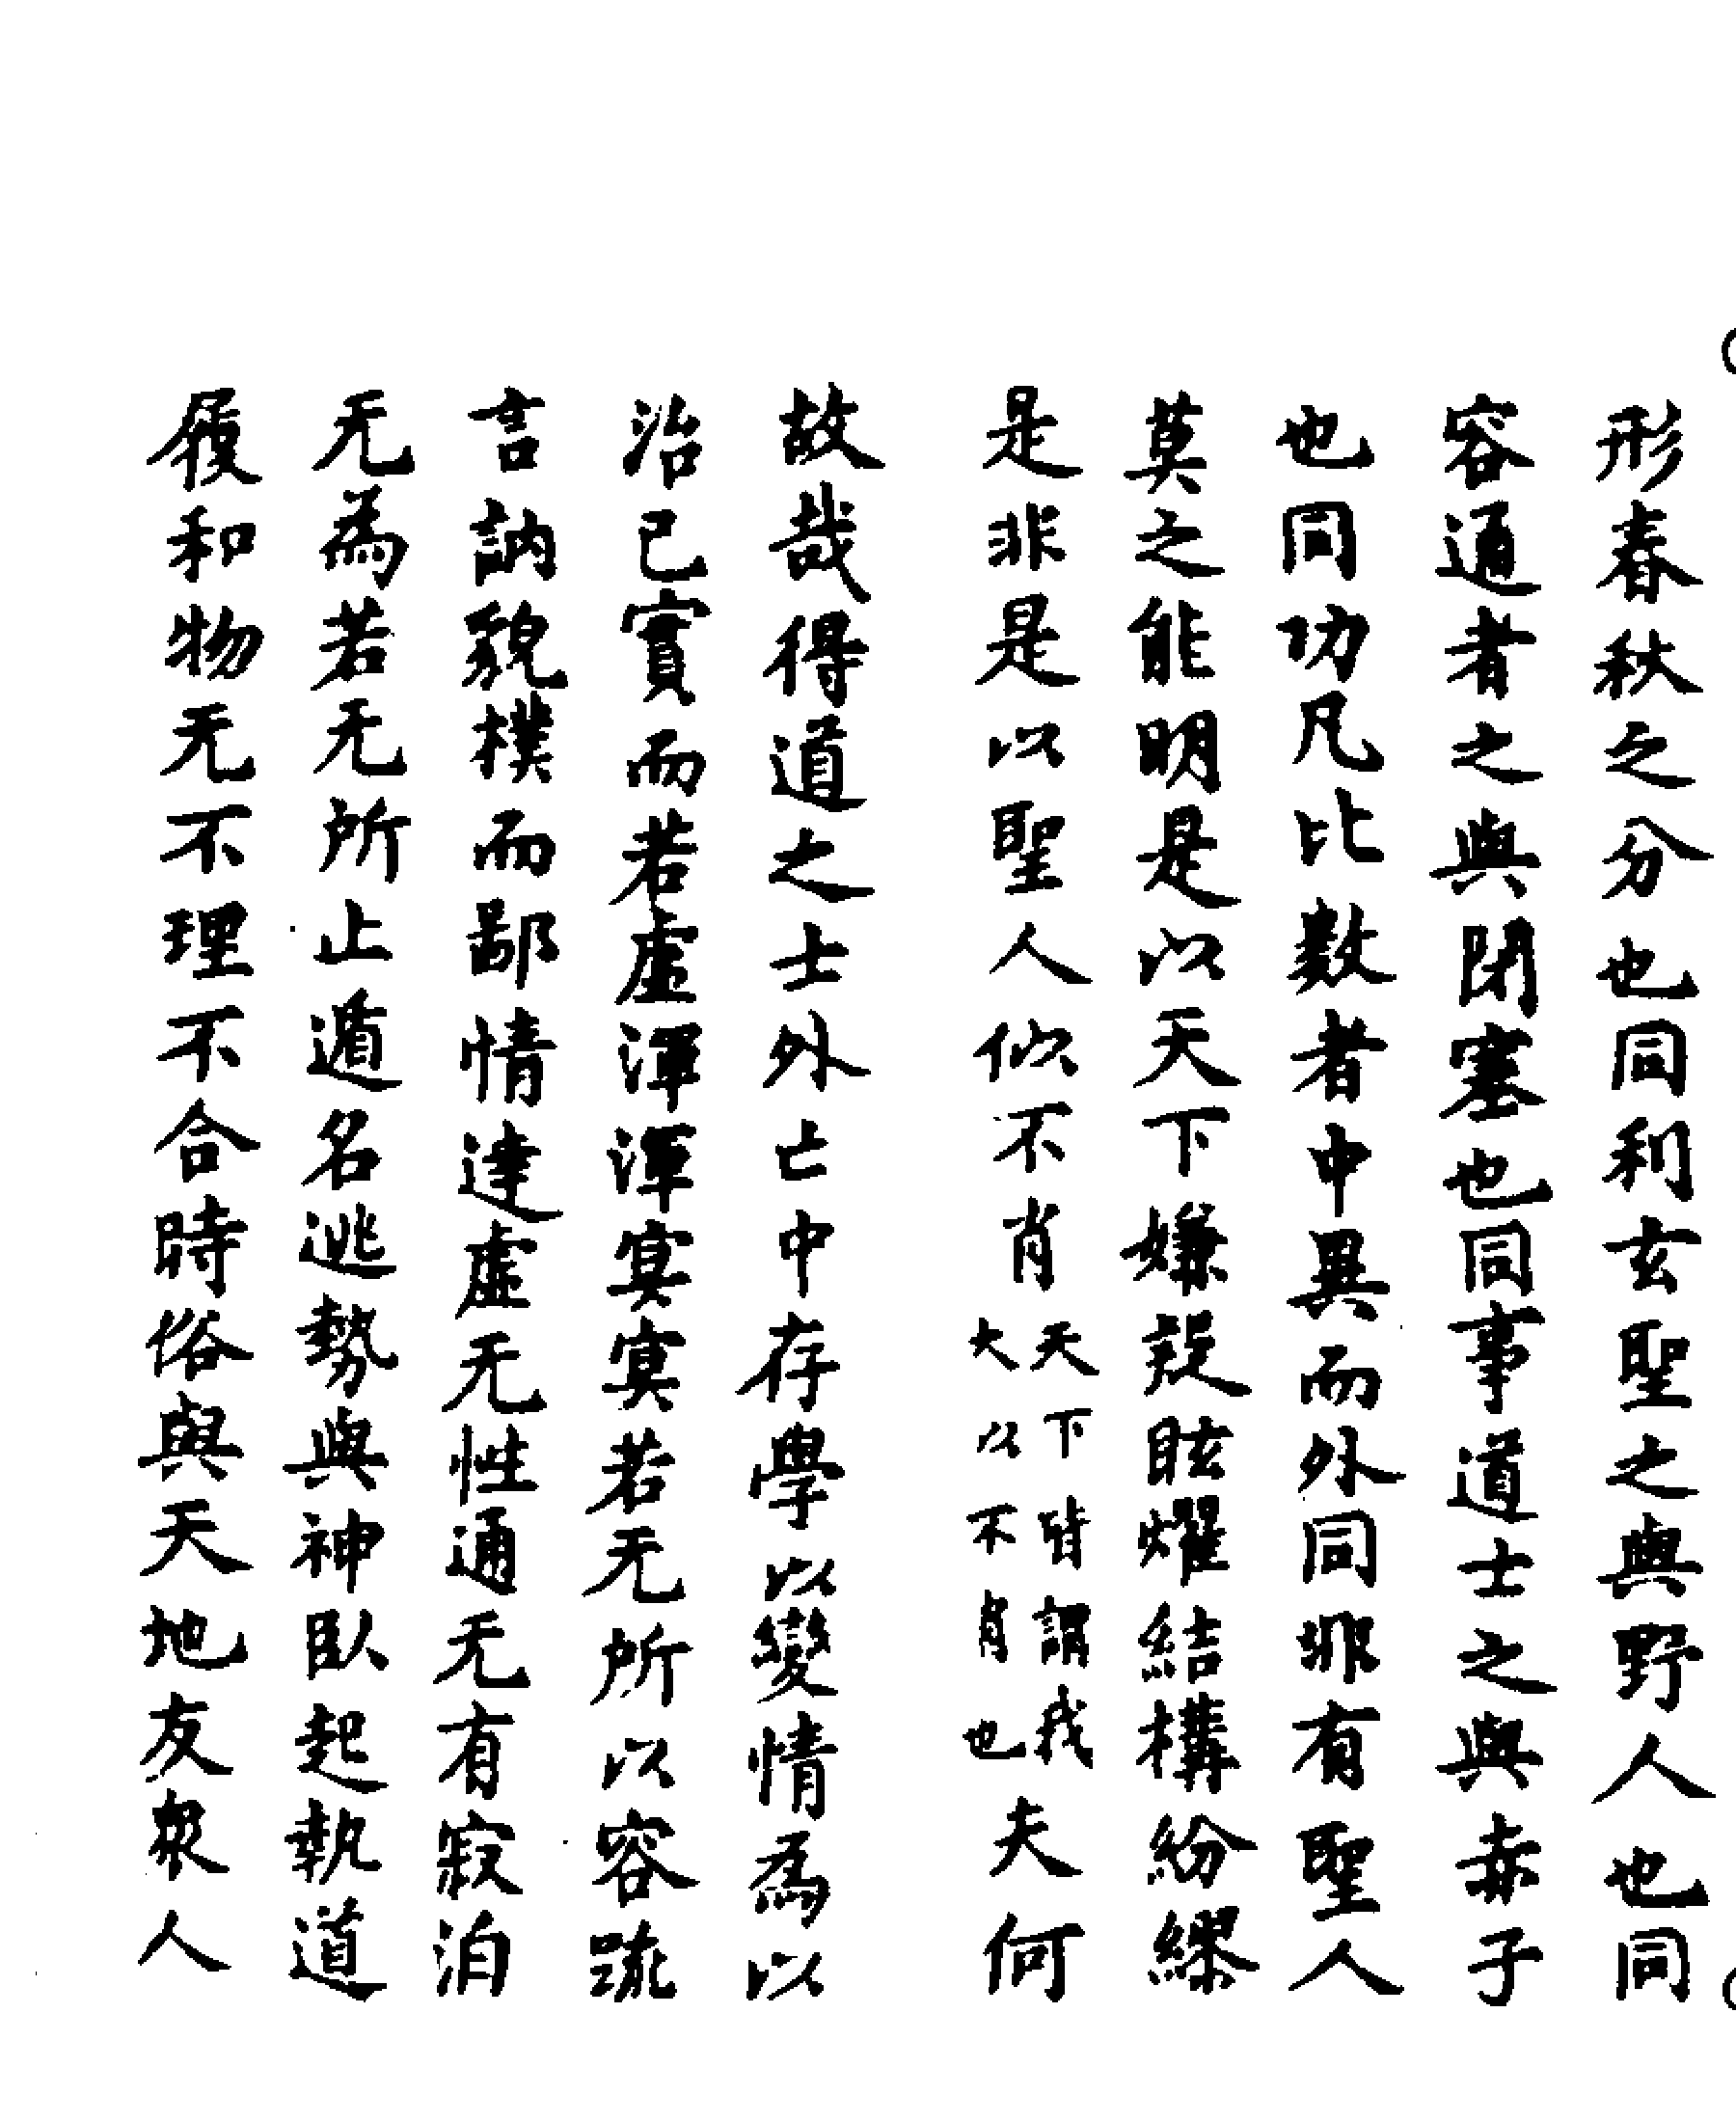 形春秋之分也同利玄聖之與野人也同
容通者之與閉塞也同事道士之與赤子
也同功凡比數者中異而外同非有聖人
莫之能明是以天下嫌疑眩燿結構紛繆
是非是以聖人似不肖天下皆謂我大以不肖也夫何
故哉得道之士外亡中存學以變情為以
治己實而若虛渾渾冥冥若无所以容疏
言訥貌樸而鄙情達虛无性通无有寂泊
无為若无所止遁名逃勢與神臥起執道
履和物无不理不合時俗與天地友衆人